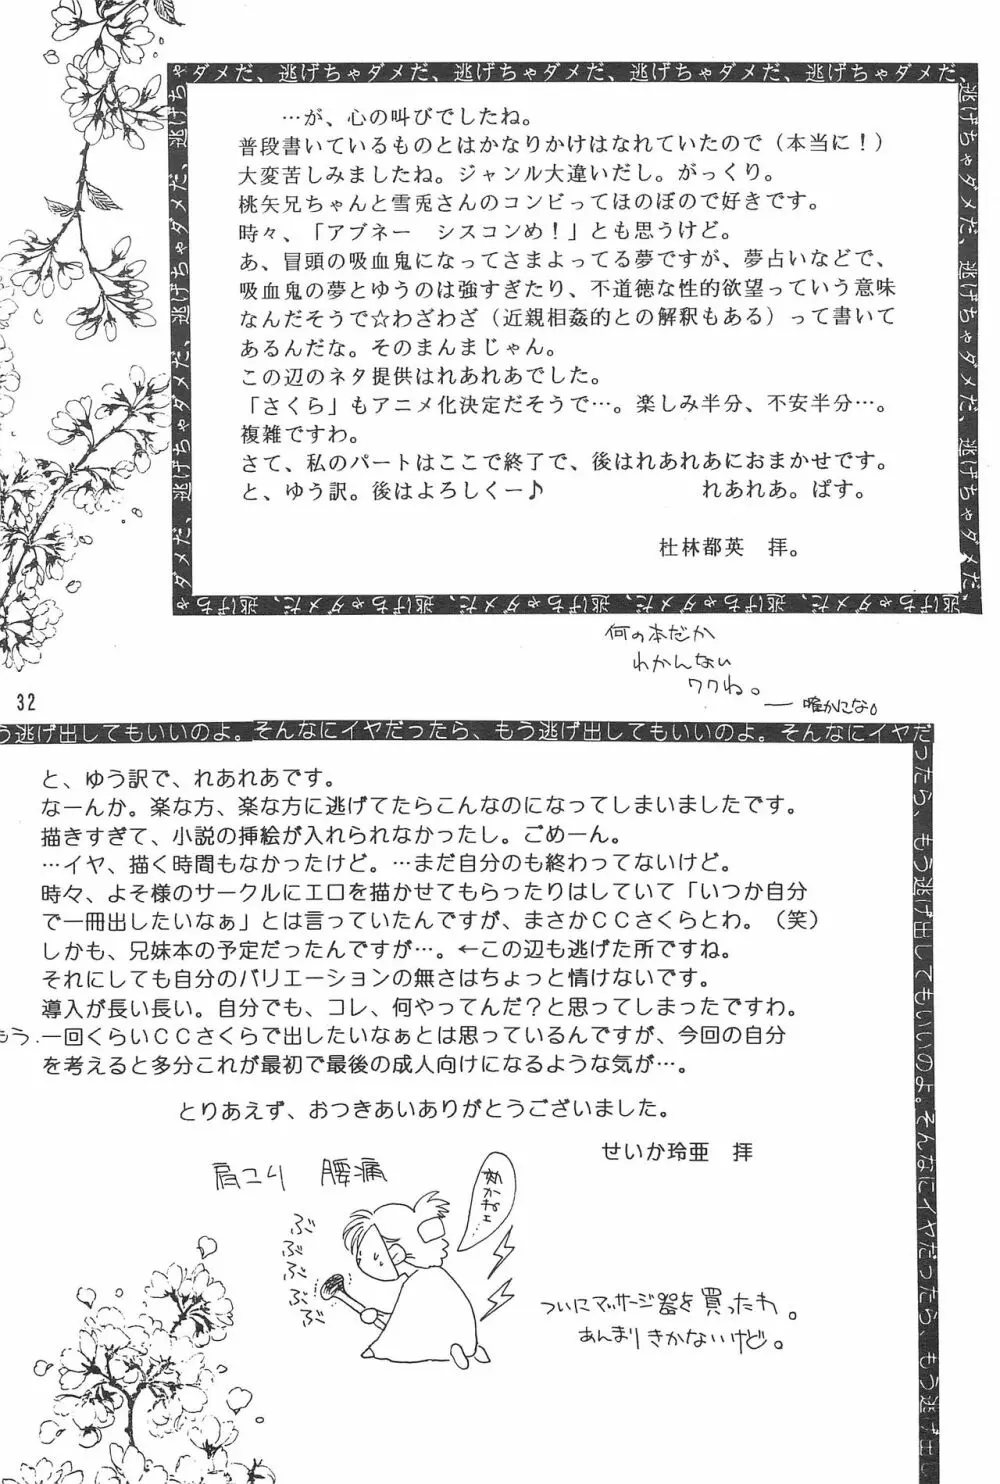 ゃダメだ、逃げちゃダメだ、逃げちゃダメだ、逃げちゃダメだ、
逃げちゃダメだ、逃げちゃダメだ、逃げちゃダメだ、
逃げちゃダメだ、逃げちゃダメだ、逃げちゃダメだ、
…が、心の叫びでしたね。
普段書いているものとはかなりかけはなれていたので（本当に！）
大変苦しみましたね。ジャンル大違いだし。がっくり。
桃矢兄ちゃんと雪兎さんのコンビってほのぼので好きです。
時々、「アブネー　シスコンめ！」とも思うけど。
あ、冒頭の吸血鬼になってさまよってる夢ですが、夢占いなどで、
吸血鬼の夢とゆうのは強すぎたり、不道徳な性的欲望っていう意味
なんだそうで☆わざわざ（近親相姦的との解釈もある）って書いて
あるんだな。そのまんまじゃん。
この辺のネタ提供はれあれあでした。
「さくら」もアニメ化決定だそうで…。楽しみ半分、不安半分…。
複雑ですわ。
さて、私のパートはここで終了で、後はれあれあにおまかせです。
と、ゆう訳。後はよろしくー♪　れあれあ。ぱす。
杜林都英　拝。
ゃダメだ、逃げちゃダメだ、逃げちゃダメだ、逃げちゃダメだ、逃げち
何の本だか
わかんない
ワクね。
― 確かにな。
32
う逃げ出してもいいのよ。そんなにイヤだったら、もう逃げ出してもいいのよ。そんなにイヤだ
ったら、もう逃げ出してもいいのよ。そんなにイヤだったら、もう逃げ出し
と、ゆう訳で、れあれあです。
なーんか。楽な方、楽な方に逃げてたらこんなのになってしまいましたです。
描きすぎて、小説の挿絵が入れられなかったし。ごめーん。
…イヤ、描く時間もなかったけど。…まだ自分のも終わってないけど。
時々、よそ様のサークルにエロを描かせてもらったりはしていて「いつか自分
で一冊出したいなぁ」とは言っていたんですが、まさかＣＣさくらとわ。（笑）
しかも、兄妹本の予定だったんですが…。←この辺も逃げた所ですね。
それにしても自分のバリエーションの無さはちょっと情けないです。
導入が長い長い。自分でも、コレ、何やってんだ？と思ってしまったですわ。
もう.一回くらいＣＣさくらで出したいなぁとは思っているんですが、今回の自分
を考えると多分これが最初で最後の成人向けになるような気が…。
とりあえず、おつきあいありがとうございました。
せいか玲亜　拝
肩こり　腰痛
ぶぶぶぶぶ
効かねェ…
ついにマッサージ器を買ったわ。
あんまりきかないけど。